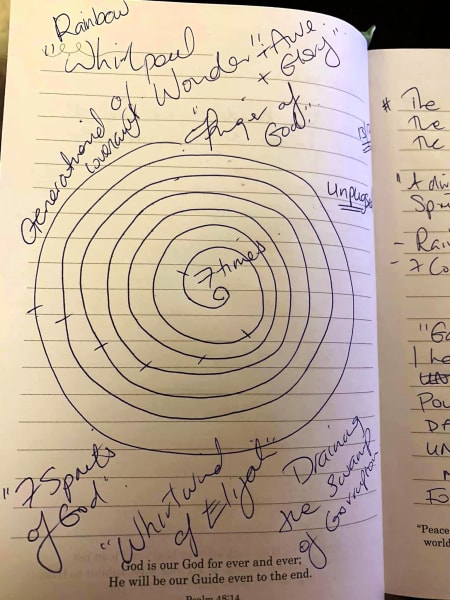 Rainbow
"Whirlpool
of Wonder"+Awe
+ Glory"
Generational
covenant
"Finger of
God."
unplugs
7 times
"7 Spirits
of God"
"Whirlwind
of Elijah"
Draining
the Swamp
of Corruption
God is our God for ever and ever;
He will be our Guide even to the end.
Psalm 48:14
* The
The
The
Spr
- Rai
- 7 Co
"Go
I he
Pow
UN
"Peace
world